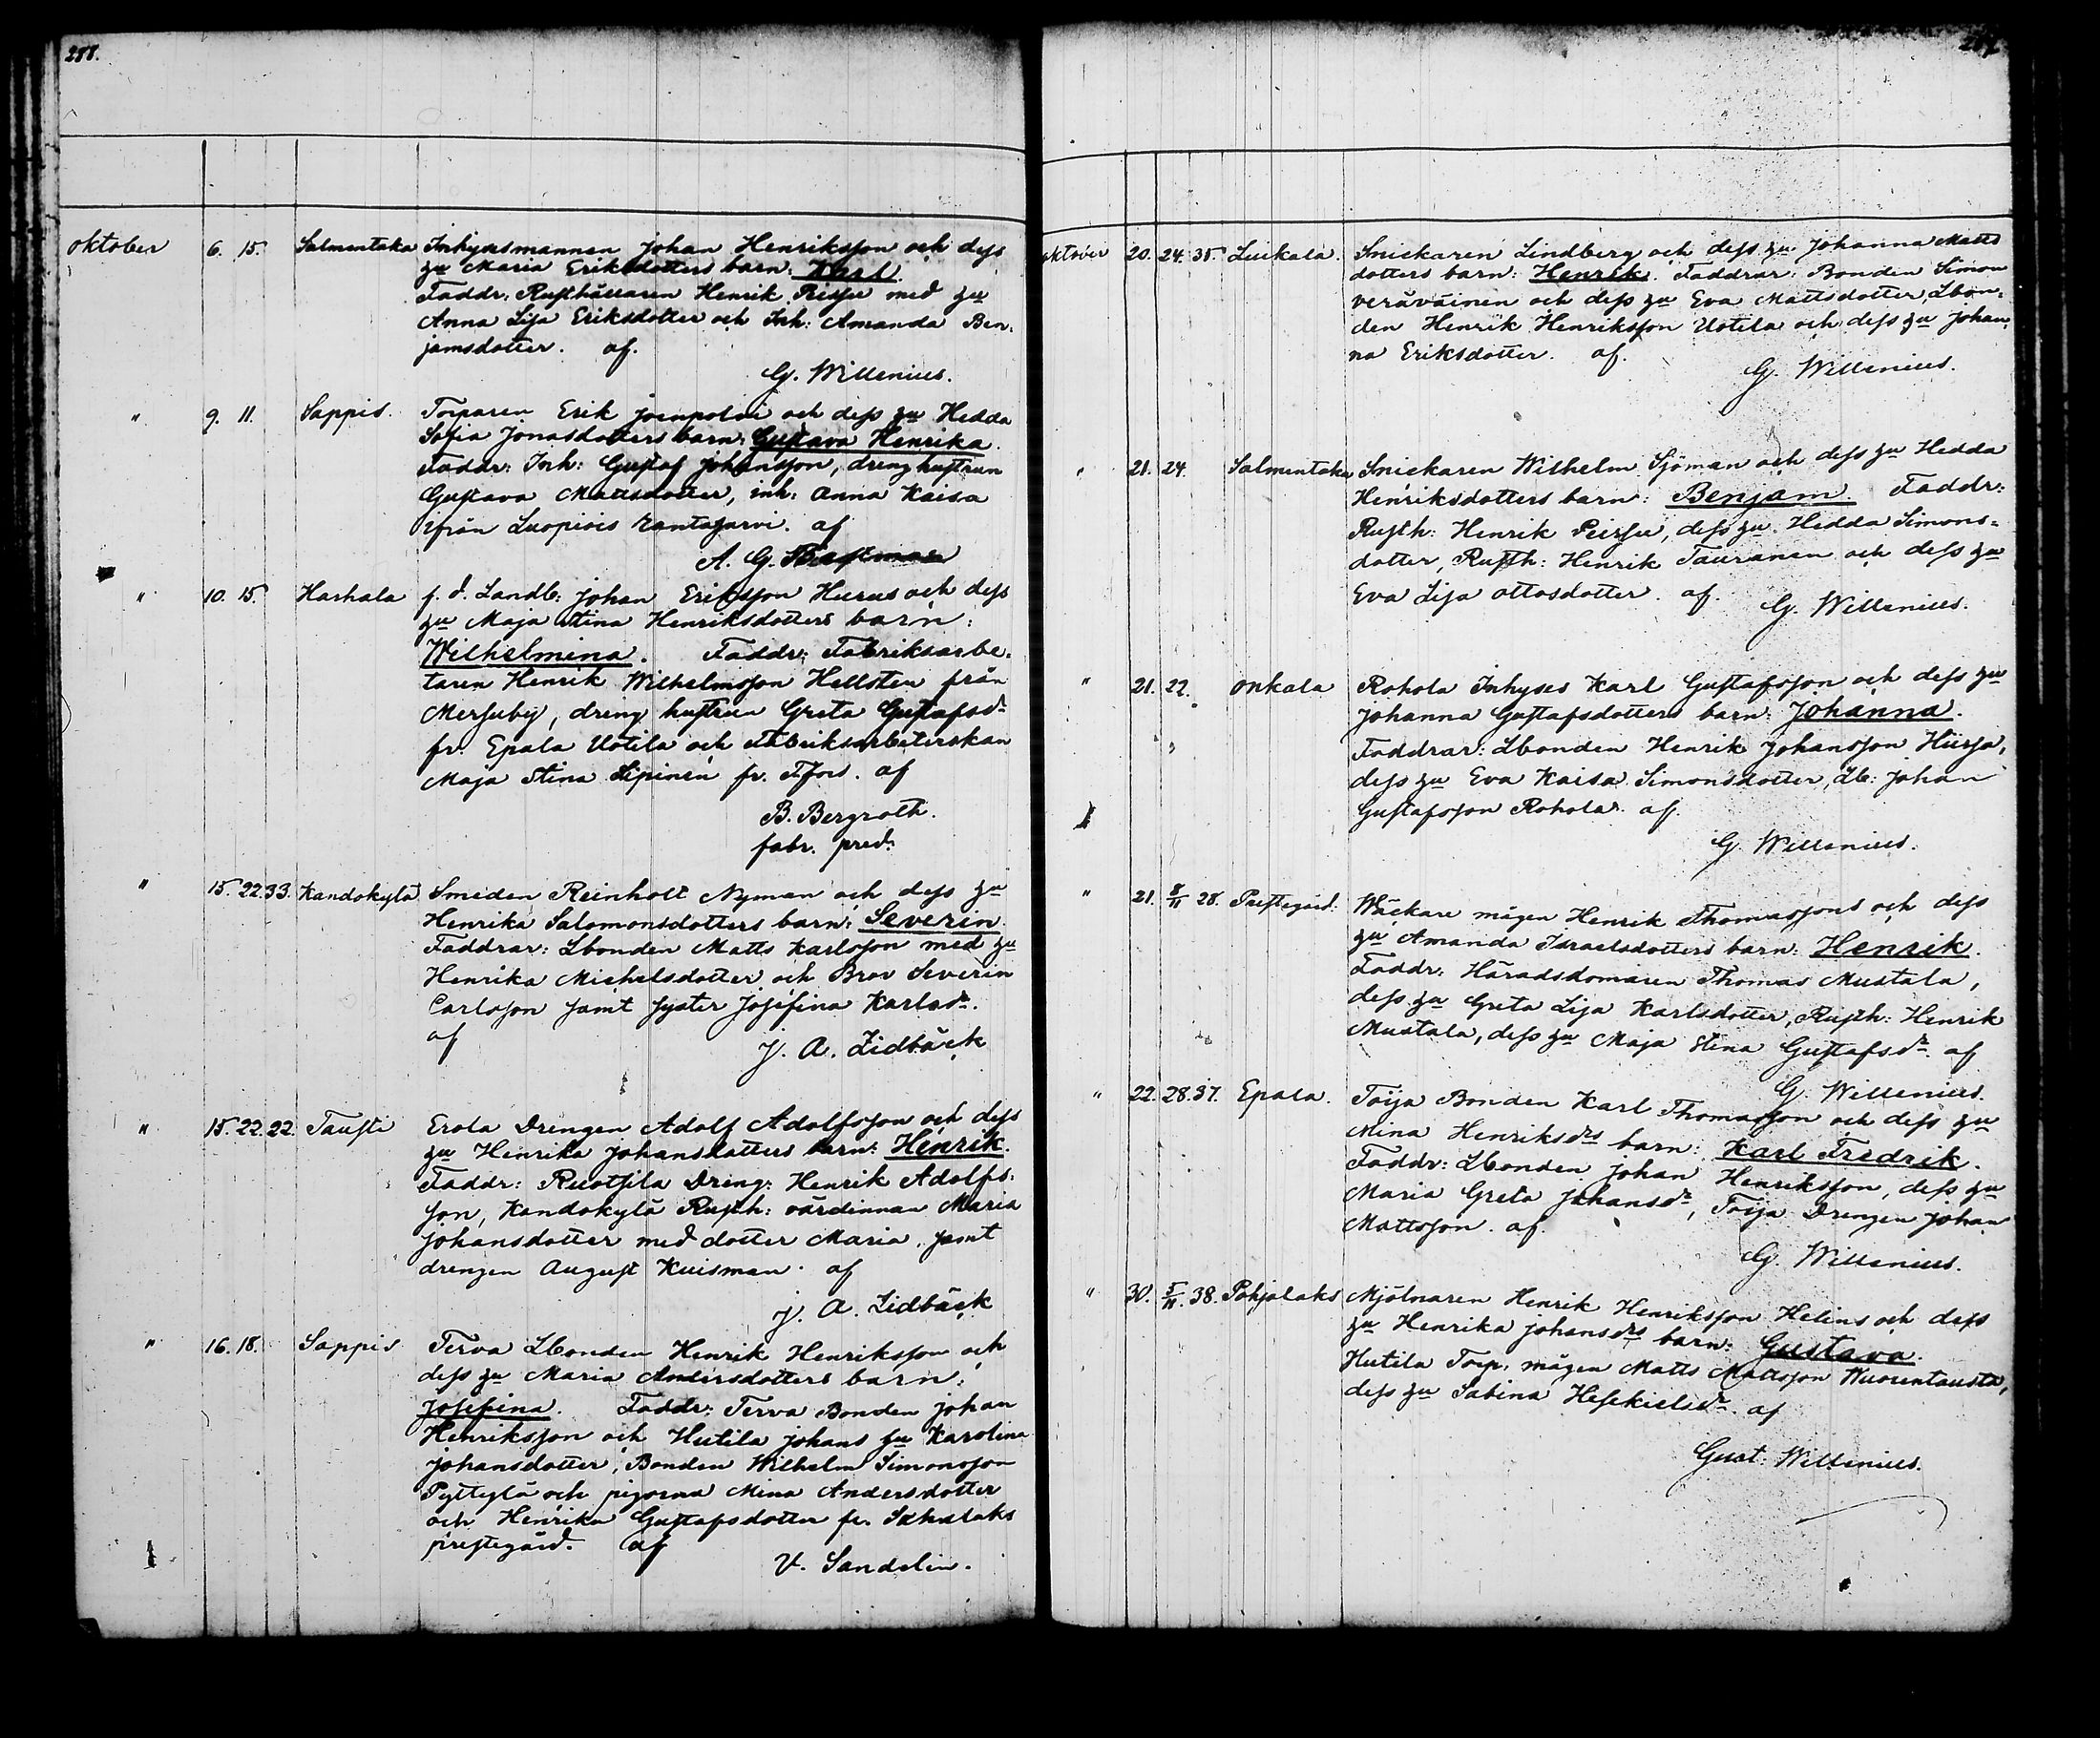 288.
oktober 6. 15. Salmentaka Inhysesmannen Johan Henriksson och dess
hu Maria Eriksdotters barn: Karl.
Faddr: Rusthållaren Henrik med hu
Anna Lisa Eriksdotter och Inh: Amanda Ben-
jamsdotter. af.
G. Willenius.
" 9. 11. Sappis. Torparen Erik Joenpolvi och dess hu Hedda
Sofia Jonasdotters barn: Gustava Henrika.
Faddr: Inh: Gustaf Johansson, dreng hustrun
Gustava Mattsdotter, inh: Anna Kaisa
ifrån Luopiois Rantajarvi. af
A. G.
" 10. 15. Harhala f. d. Landb: Johan Eriksson Hurus och dess
hu Maja Stina Henriksdotters barn:
Wilhelmina. Faddr: Fabriksarbe-
taren Henrik Wilhelmsson Hellsten från
Mersuby, dreng hustrun Greta Gustafsdr
fr. Epala Uotila och Fabriksarbeterskan
Maja Stina Sipinen fr. Tfors. af
B. Bergroth.
fabr. pred.
" 15. 22. 33. Kandokylä Smeden Reinholt Nyman och dess hu
Henrika Salomonsdotters barn: Severin
Faddrar: Lbonden Matts Karlsson med hu
Henrika Michelsdotter och Bror Severin
Carlsson samt syster Josefina Karlsdr.
af
J. A. Lidbäck
" 15. 22. 22. Tausti Erola Drengen Adolf Adolfsson och dess
hu Henrika Johansdotters barn: Henrik.
Faddr: Ruotsila Dreng: Henrik Adolfs-
son, Kandokylä Rusth: värdinnan Maria
Johansdotter med dotter Maria, samt
drengen August Kuisman. af
J. A. Lidbäck
" 16. 18. Sappis Terva Lbonden Henrik Henriksson och
dess hu Maria Andersdotters barn:
Josefina. Faddr: Terva Bonden Johan
Henriksson och Hutila Johans hu Karolina
Johansdotter, Bonden Wilhelm Simonsson
Pyttylä och pigorna Mina Andersdotter
och Henrika Gustafsdotter fr. Sahalaks
prestegård. af
V. Sandelin.
oktober 20. 24. 35. Luikala. Snickaren Lindberg och dess hu Johanna Matts
dotters barn: Henrik. Faddrar: Bonden Simon
Veräväinen och dess hu Eva Mattsdotter Lbon-
den Henrik Henriksson Uotila och dess hu Johan-
na Eriksdotter. af.
G. Willenius.
" 21. 24. Salmentaka Snickaren Wilhelm Sjöman och dess hu Hedda
Henriksdotters barn: Benjam. Faddr:
Rusth: Henrik dess hu Hedda Simons-
dotter, Rusth: Henrik Tauranen och dess hu
Eva Lisa Ottosdotter. af.
G. Willenius.
" 21. 22. Onkala Rohola Inhyses Karl Gustafsson och dess hu
Johanna Gustafsdotters barn: Johanna.
Faddrar: Lbonden Henrik Johansson Hiirsa,
dess hu Eva Kaisa Simonsdotter, Lb: Johan
Gustafsson Rohola. af.
G. Willenius.
" 21. 8/11 28. Prestegård. Wäckare mågen Henrik Thomassons och dess
hu Amanda Israelsdotters barn: Henrik.
Faddr: Häradsdomaren Thomas Mustala,
dess hu Greta Lisa Karlsdotter, Rusth: Henrik
Mustala, dess hu Maja Stina Gustafsdr. af
G. Willenius.
" 22. 28. 37. Epala. Toija Bonden Karl Thomasson och dess hu
Mina Henriksdrs barn: Karl Fredrik.
Faddr: Lbonden Johan Henriksson, dess hu
Maria Greta Johansdr, Toija Drengen Johan
Mattsson. af.
G. Willenius.
" 30. 5/11. 38. Pohjalaks Mjölnaren Henrik Henriksson Helins och dess
hu Henrika Johansdrs barn: Gustava.
Hutila Torp: mågen Matts Mattsson Wuorentausta,
dess hu Sabina Hesekielsdr. af
Gust. Willenius.